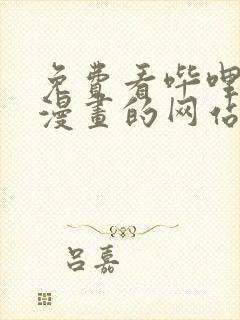 免费看哔哩
漫画的网站
吕嘉